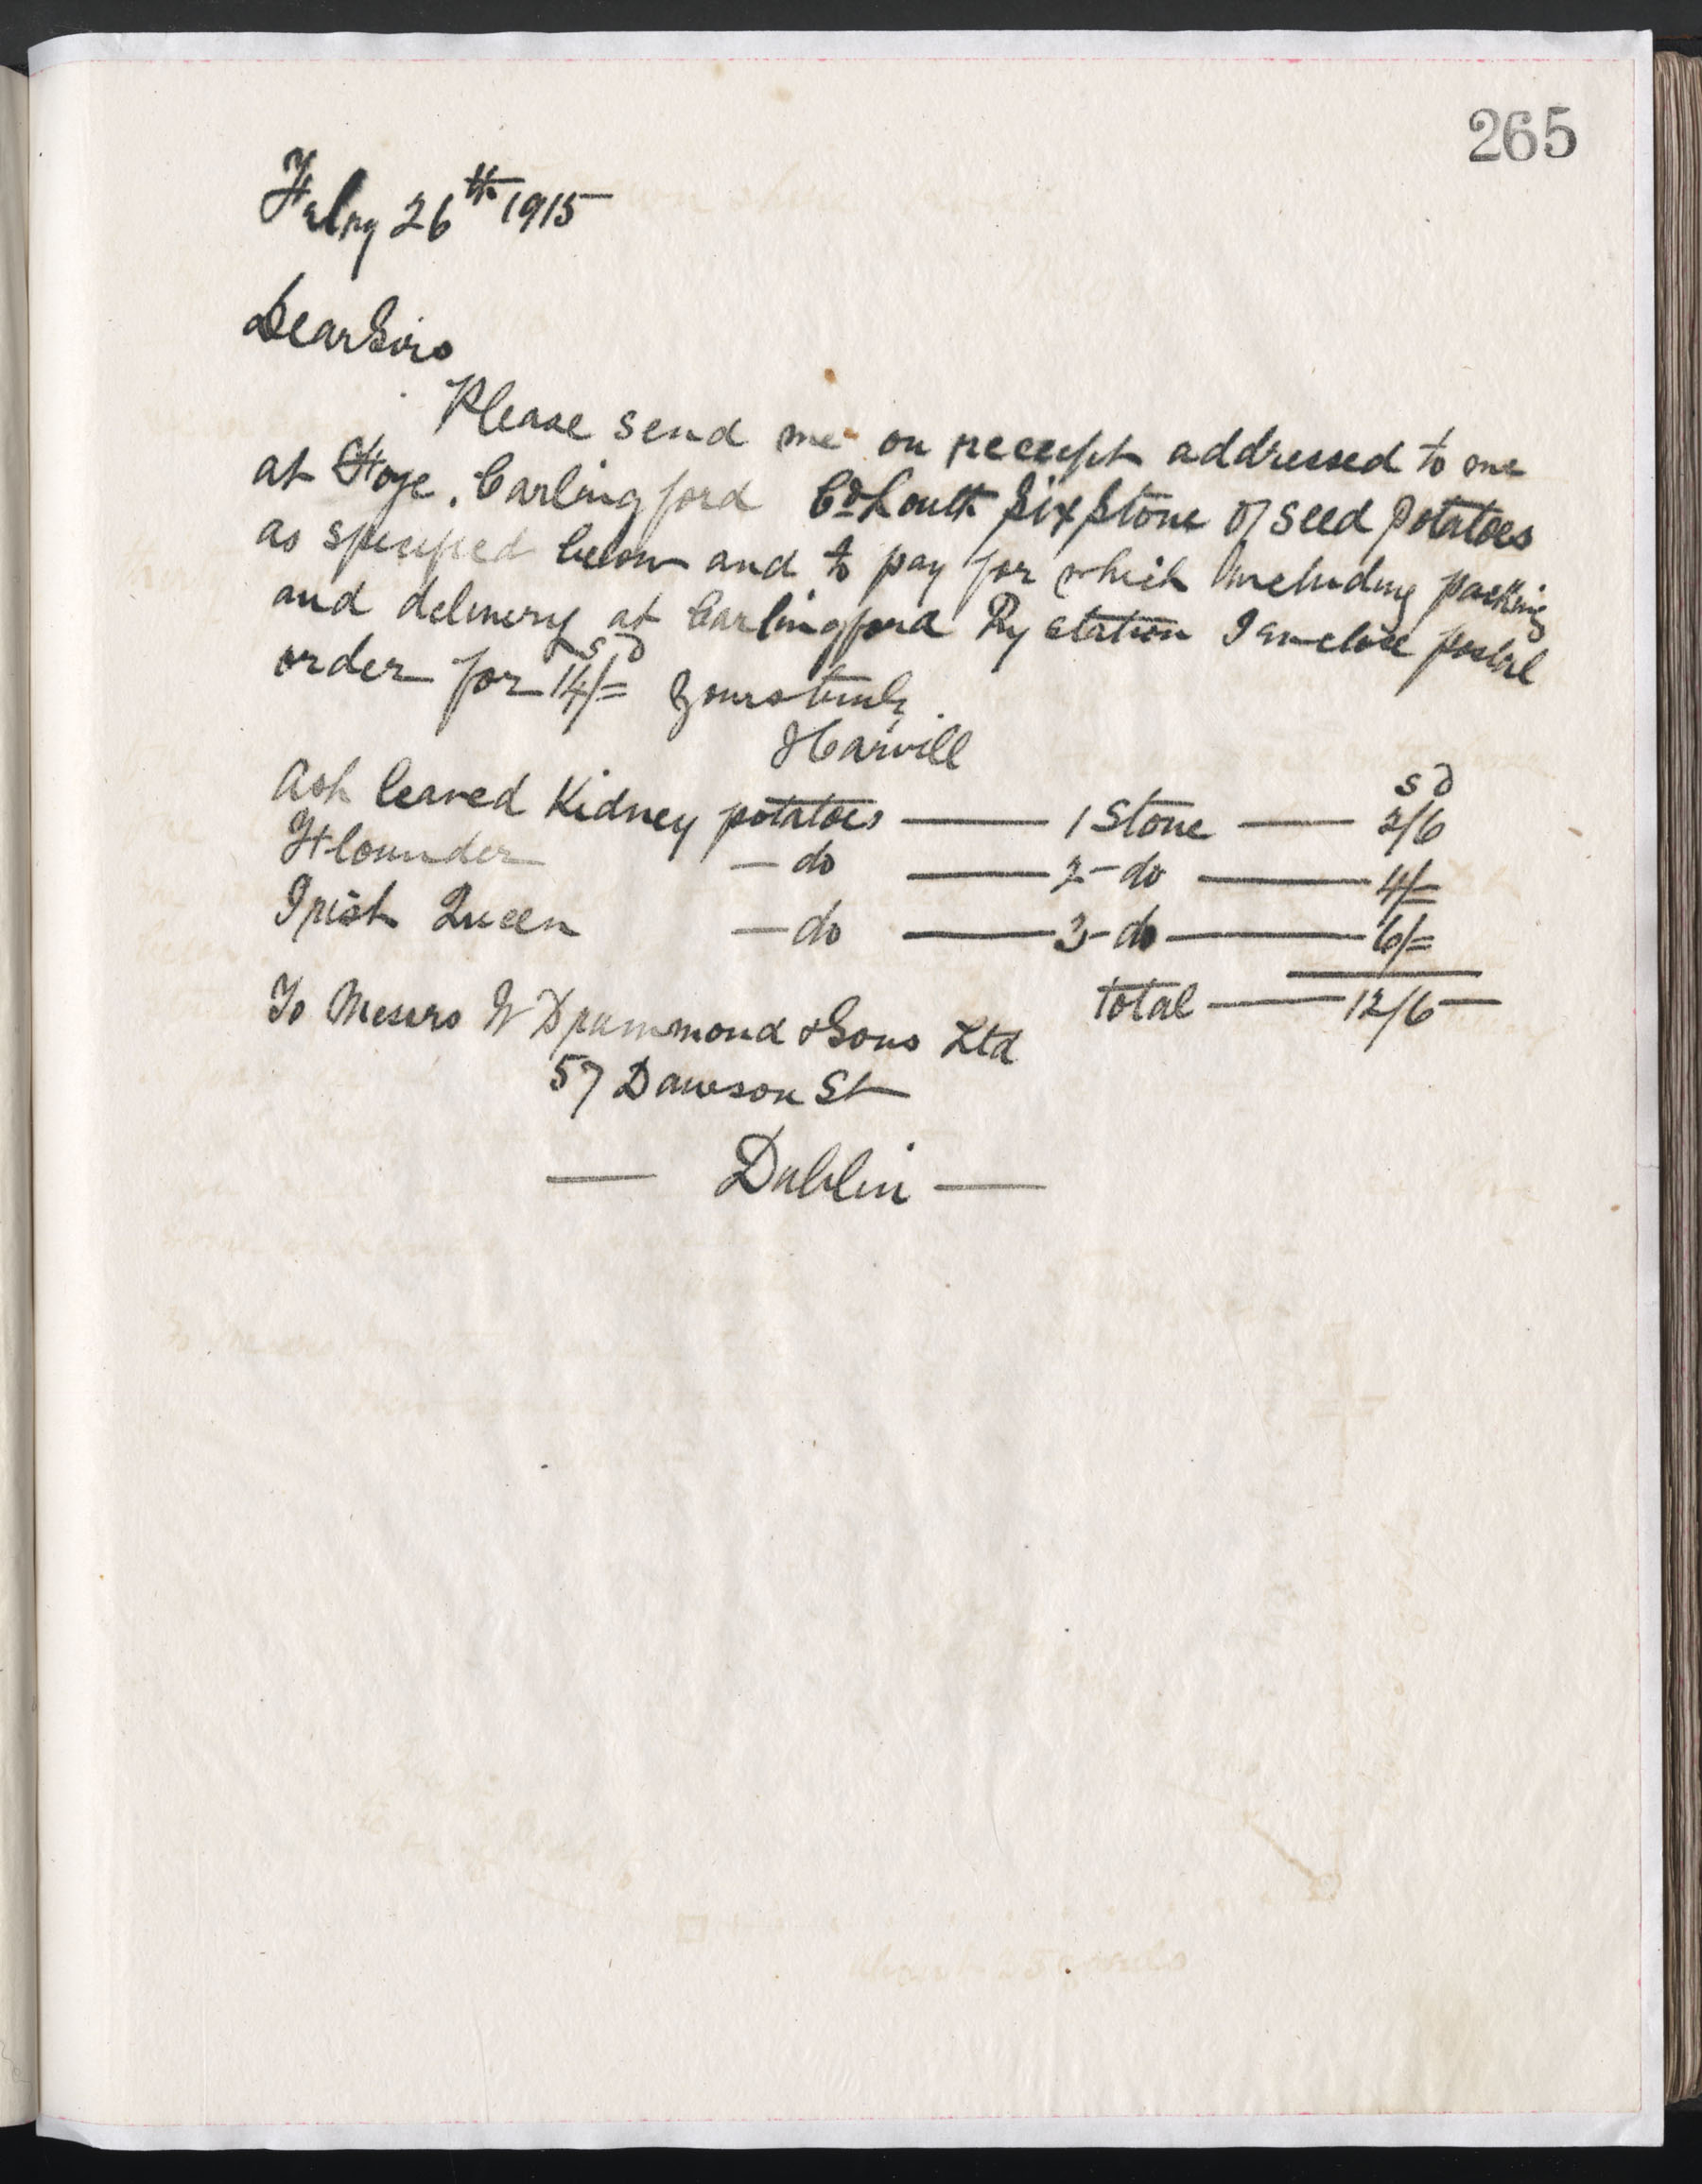 265
Febry 26th 1915
Dear Sirs
Please send me on receipt addressed to me
at Carlingford Co Louth Six Stone of seed potatoes
as specified below and to pay for which including packing
and delivery at Carlingford Ry station I enclose postal
£ s d
order for 14/= Yours truly
Harvill
s d
Ash leaved Kidney potatoes — 1 Stone — 2/6
Flounder — do — 2 – do — 4/=
Irish Queen — do — 3 – do — 6/=
total — 12/6 —
To Messrs W Drummond & Sons Ltd
57 Dawson St
— Dublin —